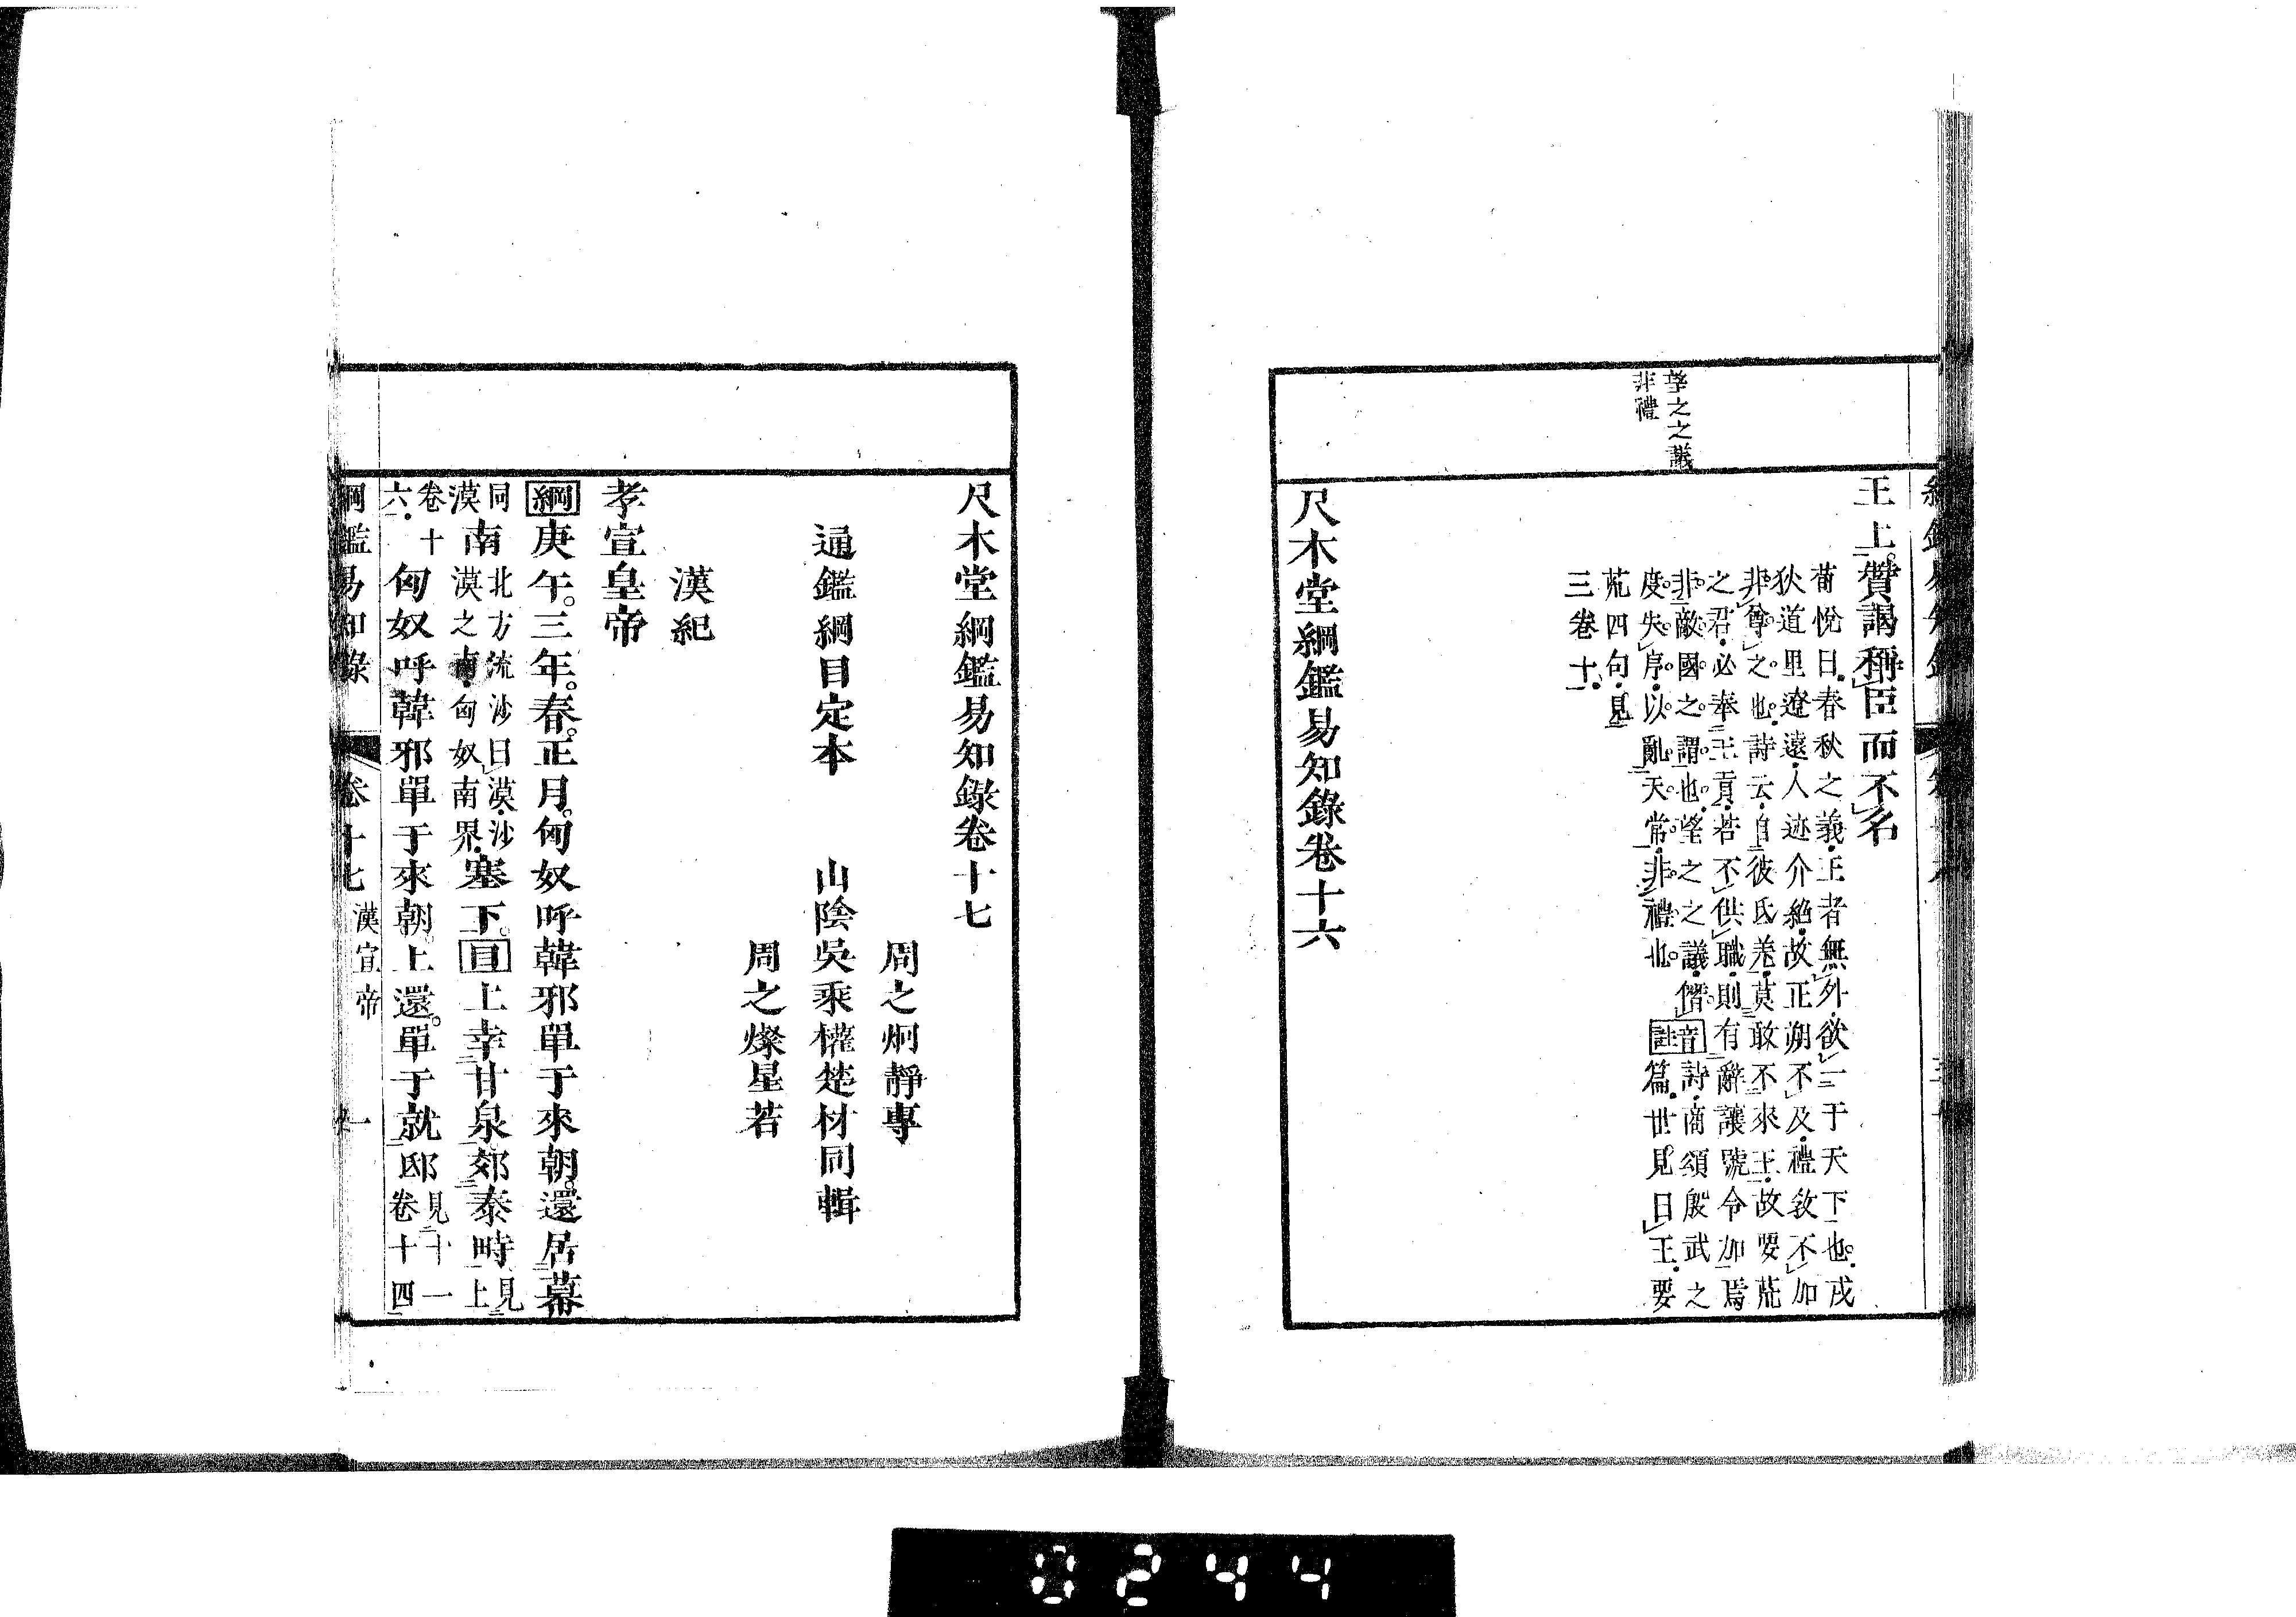 望之之議
非禮
王上。贊謁稱臣而不名
荀悅曰。春秋之義。王者無外。欲一于天下也。戎
狄道里遼遠。人迹介絕。故正朔不及。禮敎不加
非尊之也。詩云。自彼氐羌。莫敢不來王。故要荒
之君。必奉王貢。若不供職。則有辭讓號令加焉
非敵國之謂也。望之之議。僭音詩。商頌殷武之
度失序。以亂天常。非禮也。註篇。世見曰王。要
荒四句。見
三卷十。
尺木堂綱鑑易知錄卷十六
尺木堂綱鑑易知錄卷十七
周之炯靜專
通鑑綱目定本 山陰吳乘權楚材同輯
周之燦星若
漢紀
孝宣皇帝
綱庚午。三年。春。正月。匈奴呼韓邪單于來朝。還居幕
同漠南北方流沙曰漠。沙漠之南。匈奴南界。塞下。目上幸甘泉郊泰畤見上
卷十六。匈奴呼韓邪單于來朝。上還。單于就邸見十一卷十四
綱鑑易知錄 卷十七 漢宣帝 一
0244